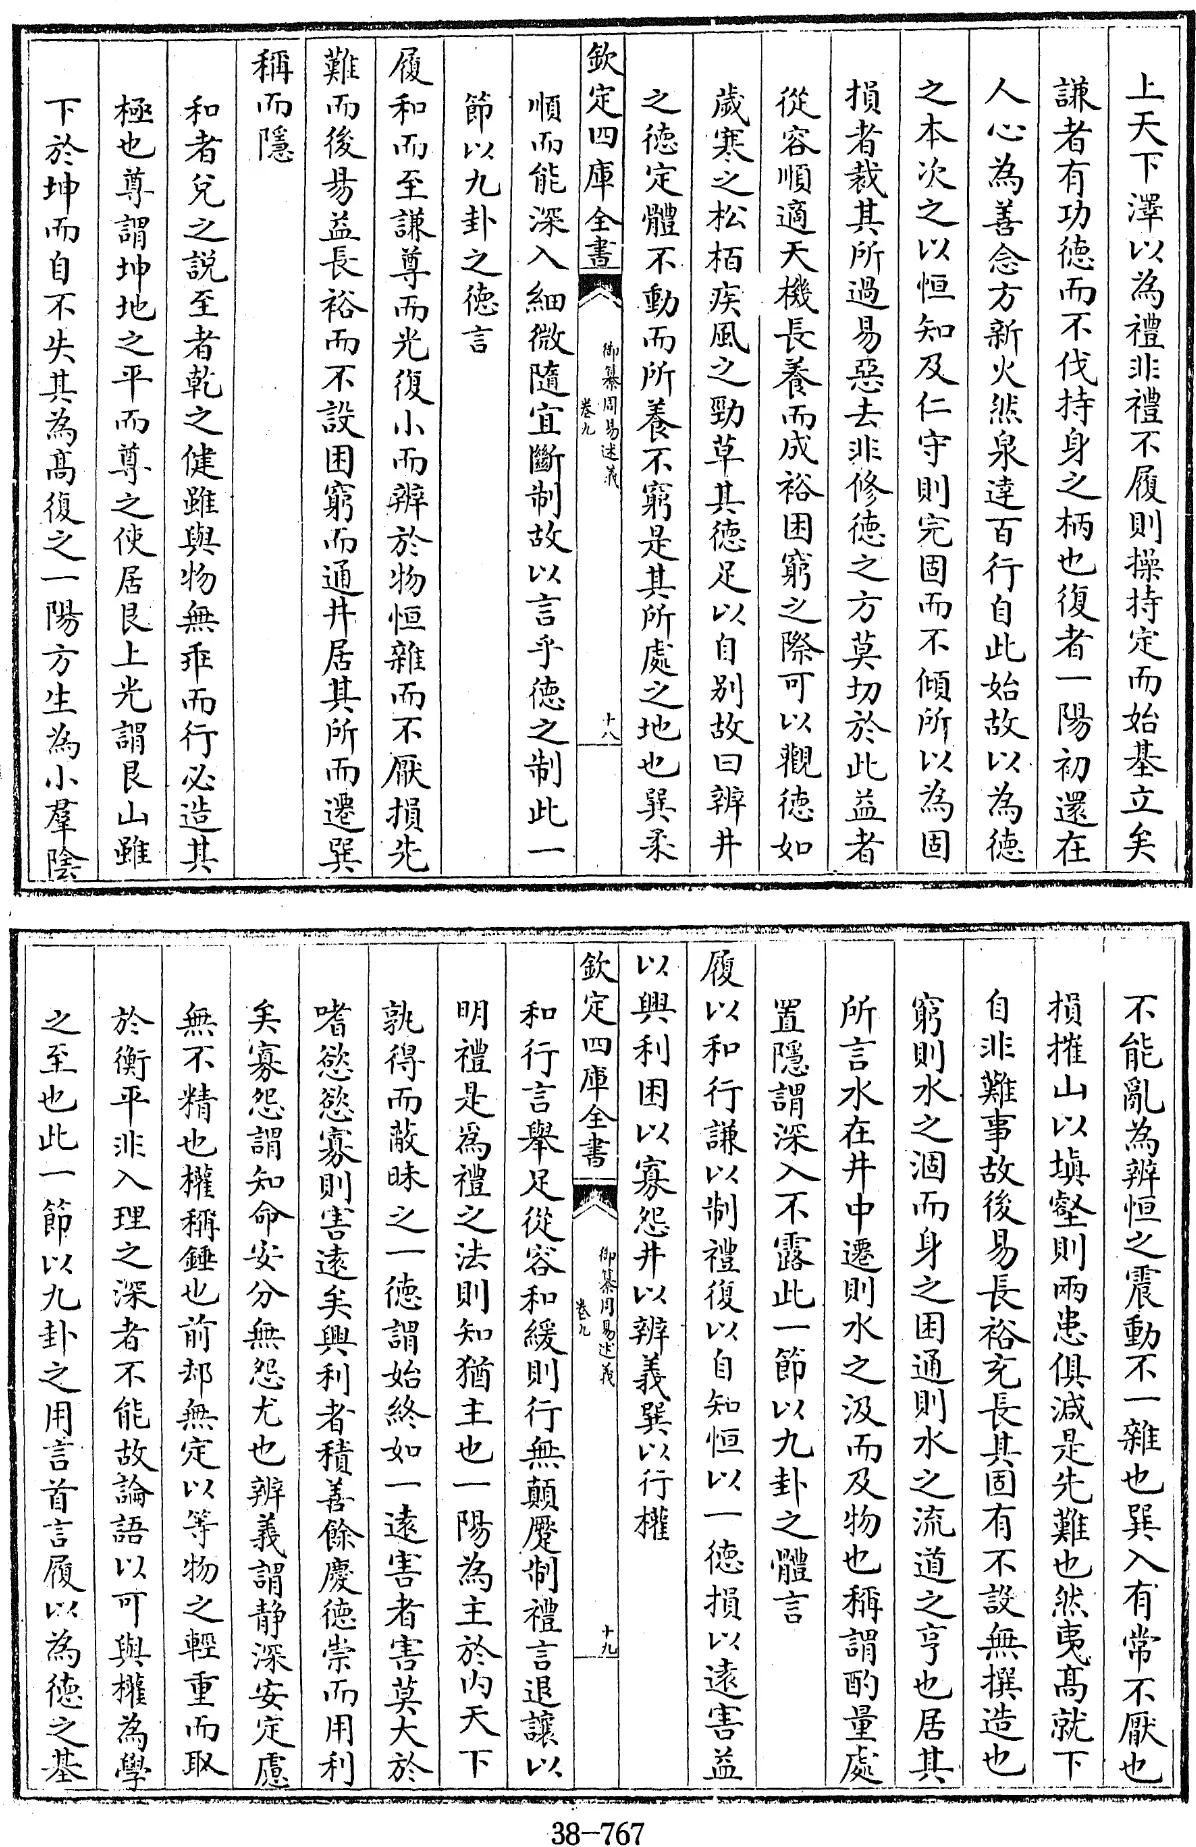 上天下澤以為禮非禮不履則操持定而始基立矣
謙者有功德而不伐持身之柄也復者一陽初還在
人心為善念方新火然泉達百行自此始故以為德
之本次之以恒知及仁守則完固而不傾所以為固
損者裁其所過易惡去非修德之方莫切於此益者
從容順適天機長養而成裕困窮之際可以觀德如
歲寒之松栢疾風之勁草其德足以自别故曰辨井
之德定體不動而所養不窮是其所處之地也巽柔
欽定四庫全書
御纂周易述義
卷九
十八
順而能深入細微隨宜斷制故以言乎德之制此一
節以九卦之德言
履和而至謙尊而光復小而辨於物恒雜而不厭損先
難而後易益長裕而不設困窮而通井居其所而遷巽
稱而隱
和者兌之説至者乾之健雖與物無乖而行必造其
極也尊謂坤地之平而尊之使居艮上光謂艮山雖
下於坤而自不失其為高復之一陽方生為小羣陰
不能亂為辨恒之震動不一雜也巽入有常不厭也
損摧山以塡壑則兩患俱減是先難也然夷高就下
自非難事故後易長裕充長其固有不設無撰造也
窮則水之涸而身之困通則水之流道之亨也居其
所言水在井中遷則水之汲而及物也稱謂酌量處
置隱謂深入不露此一節以九卦之體言
履以和行謙以制禮復以自知恒以一德損以遠害益
以興利困以寡怨井以辨義巽以行權
欽定四庫全書
御纂周易述義
卷九
十九
和行言舉足從容和緩則行無顛蹷制禮言退讓以
明禮是為禮之法則知猶主也一陽為主於内天下
孰得而蔽昧之一德謂始終如一遠害者害莫大於
嗜慾慾寡則害遠矣興利者積善餘慶德崇而用利
矣寡怨謂知命安分無怨尤也辨義謂靜深安定慮
無不精也權稱錘也前却無定以等物之輕重而取
於衡平非入理之深者不能故論語以可與權為學
之至也此一節以九卦之用言首言履以為德之基
38-767